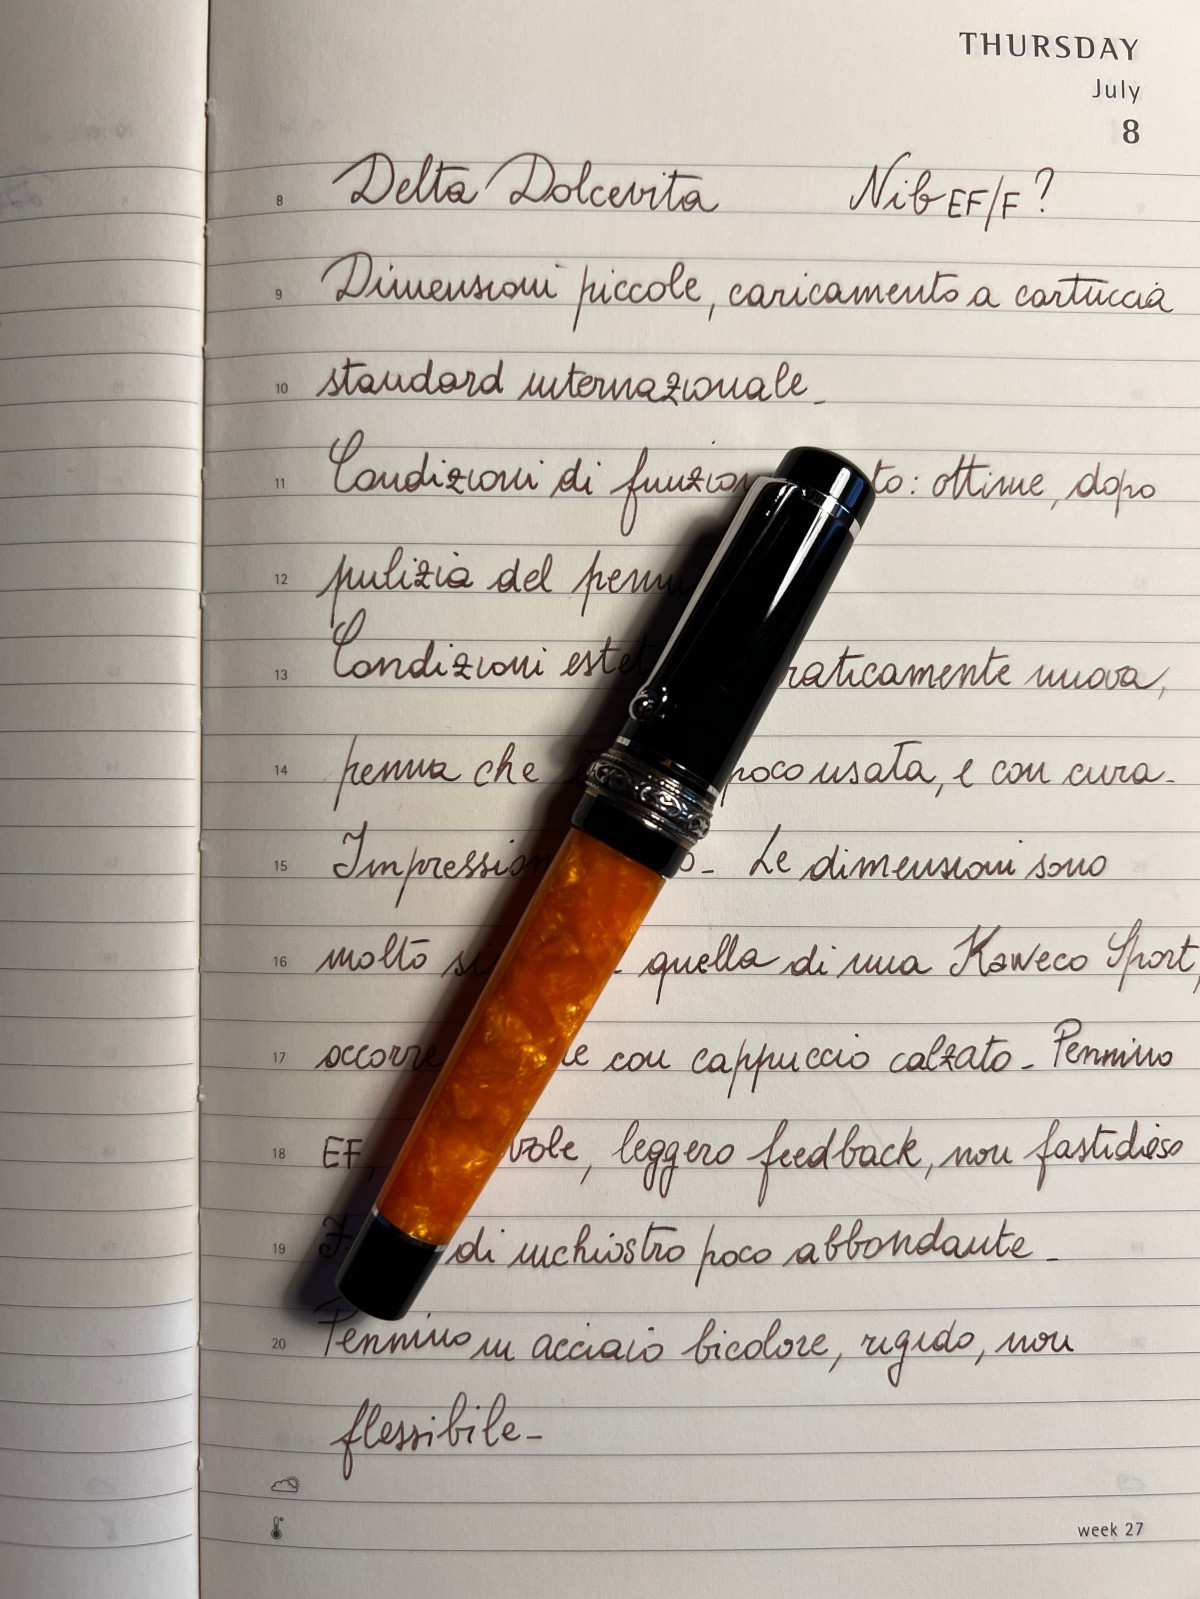 THURSDAY
July
8
8 Delta Dolcevita Nib EF/F?
9 Dimensioni piccole, caricamento a cartuccia
10 standard internazionale_
11 Condizioni di funzion to: ottime, dopo
12 pulizia del penni
13 Condizioni estet raticamente nuova,
14 penna che poco usata, e con cura_
15 Impression o_ Le dimensioni sono
16 molto si quella di una Kaweco Sport,
17 occorre e con cappuccio calzato_ Pennino
18 EF, vole, leggero feedback, non fastidioso
19 di inchiostro poco abbondante_
20 Pennino in acciaio bicolore, rigido, non
flessibile_
week 27